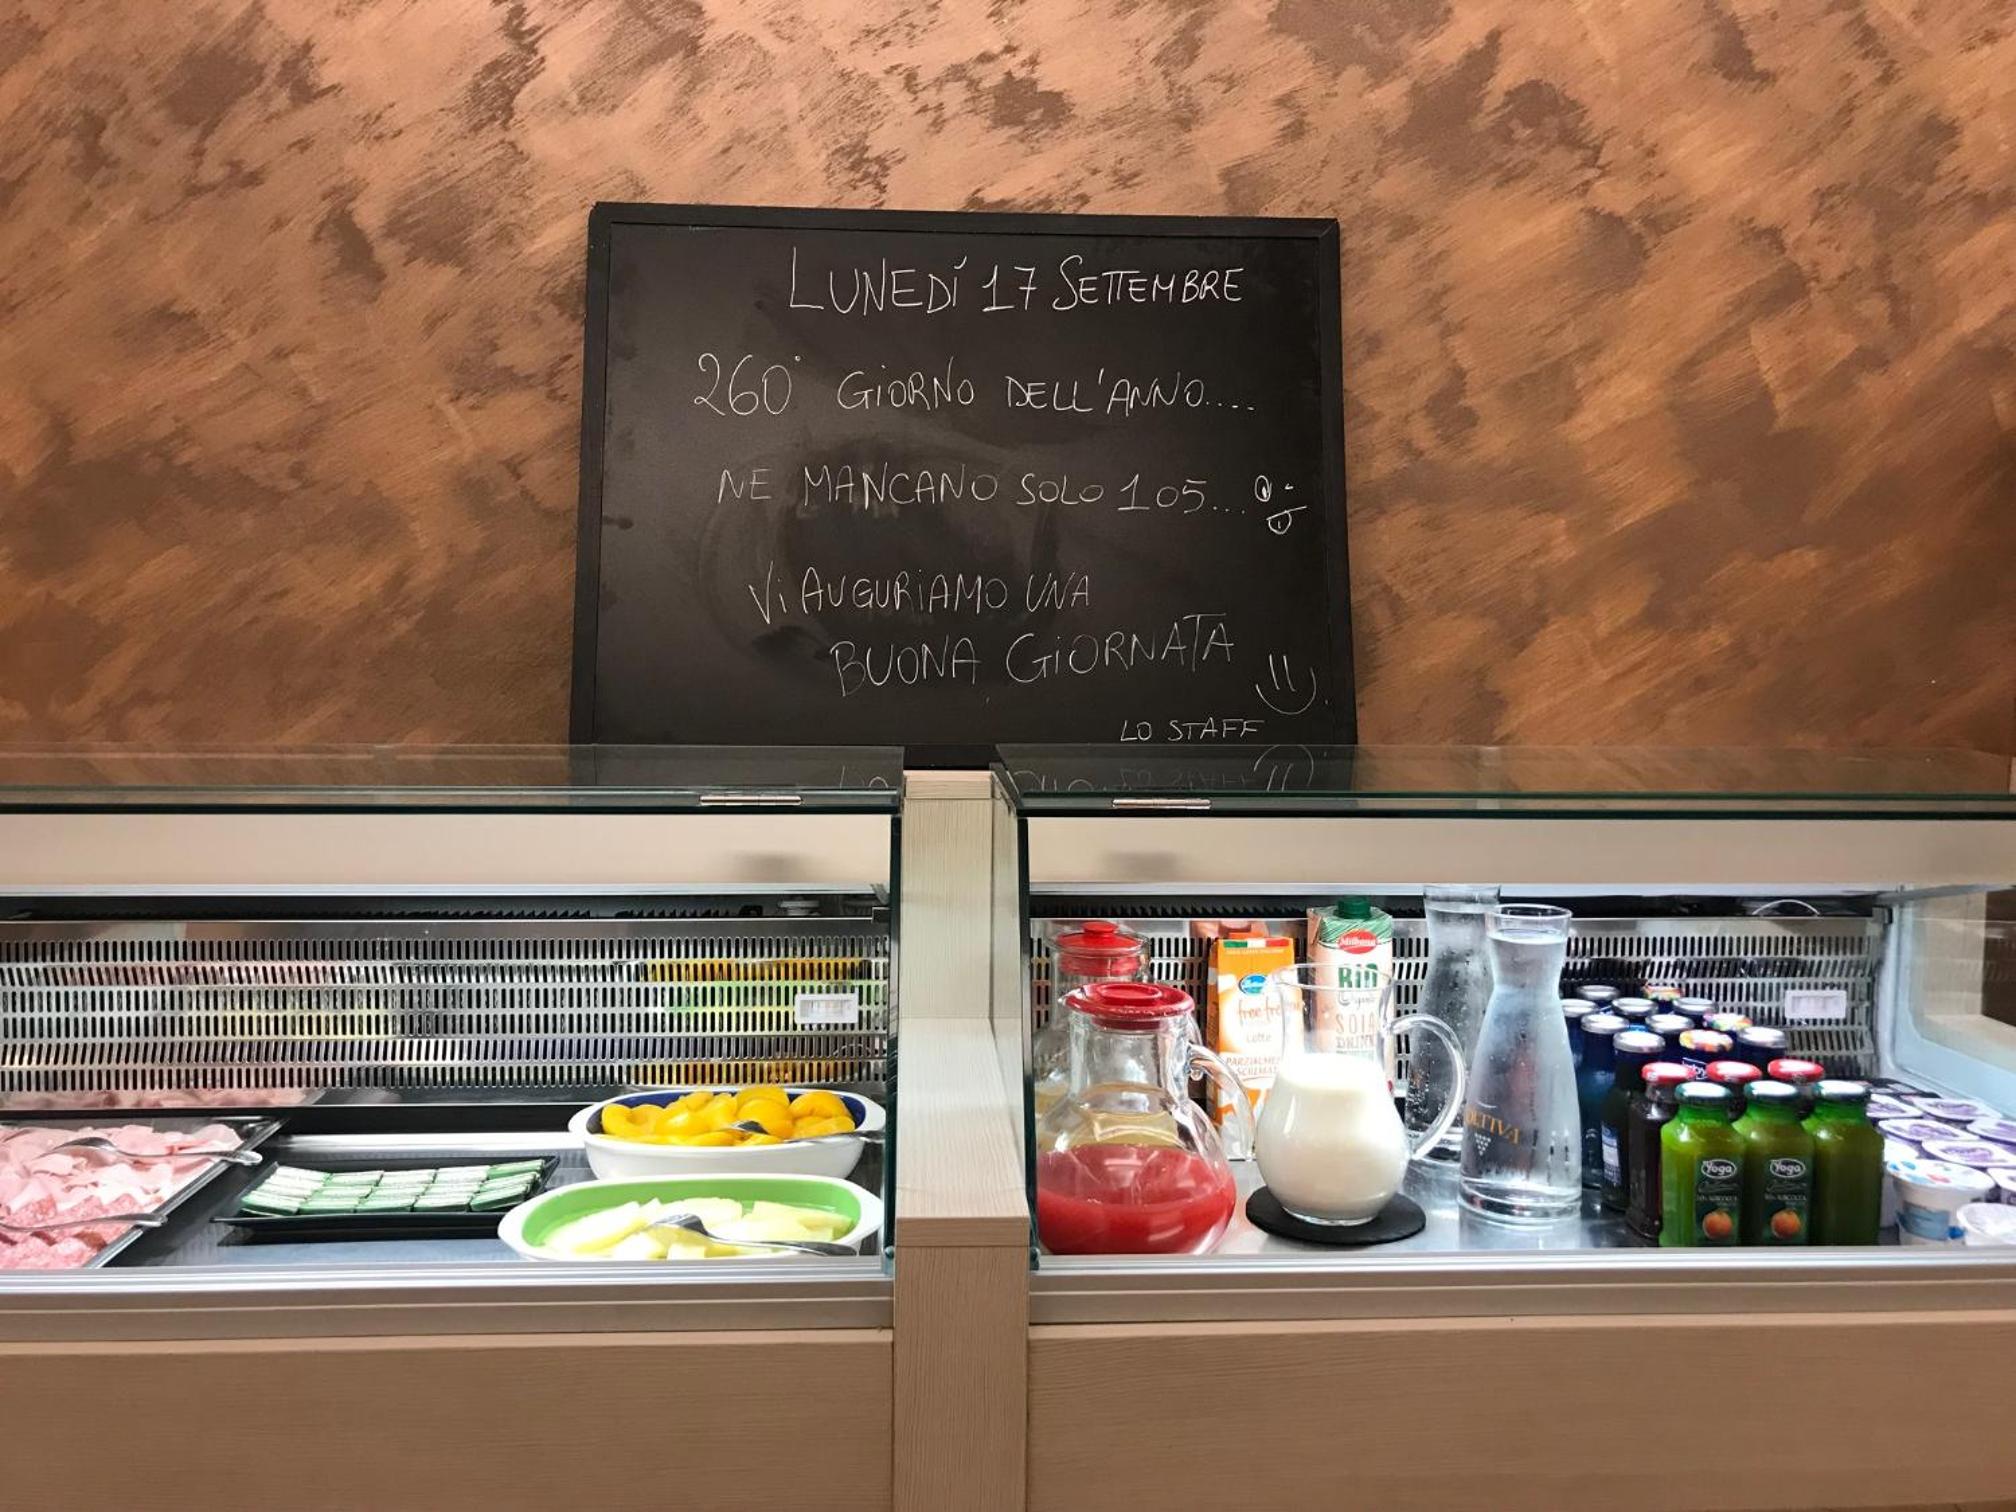 LUNEDÍ 17 SETTEMBRE
260° GIORNO DELL'ANNO....
NE MANCANO SOLO 105...
VI AUGURIAMO UNA
BUONA GIORNATA
LO STAFF
free from
Latte
PARZIALME
SCREMA
Milbona
BIO
Organic
SOIA
DRINK
OLTIVA
Yoga
Yoga